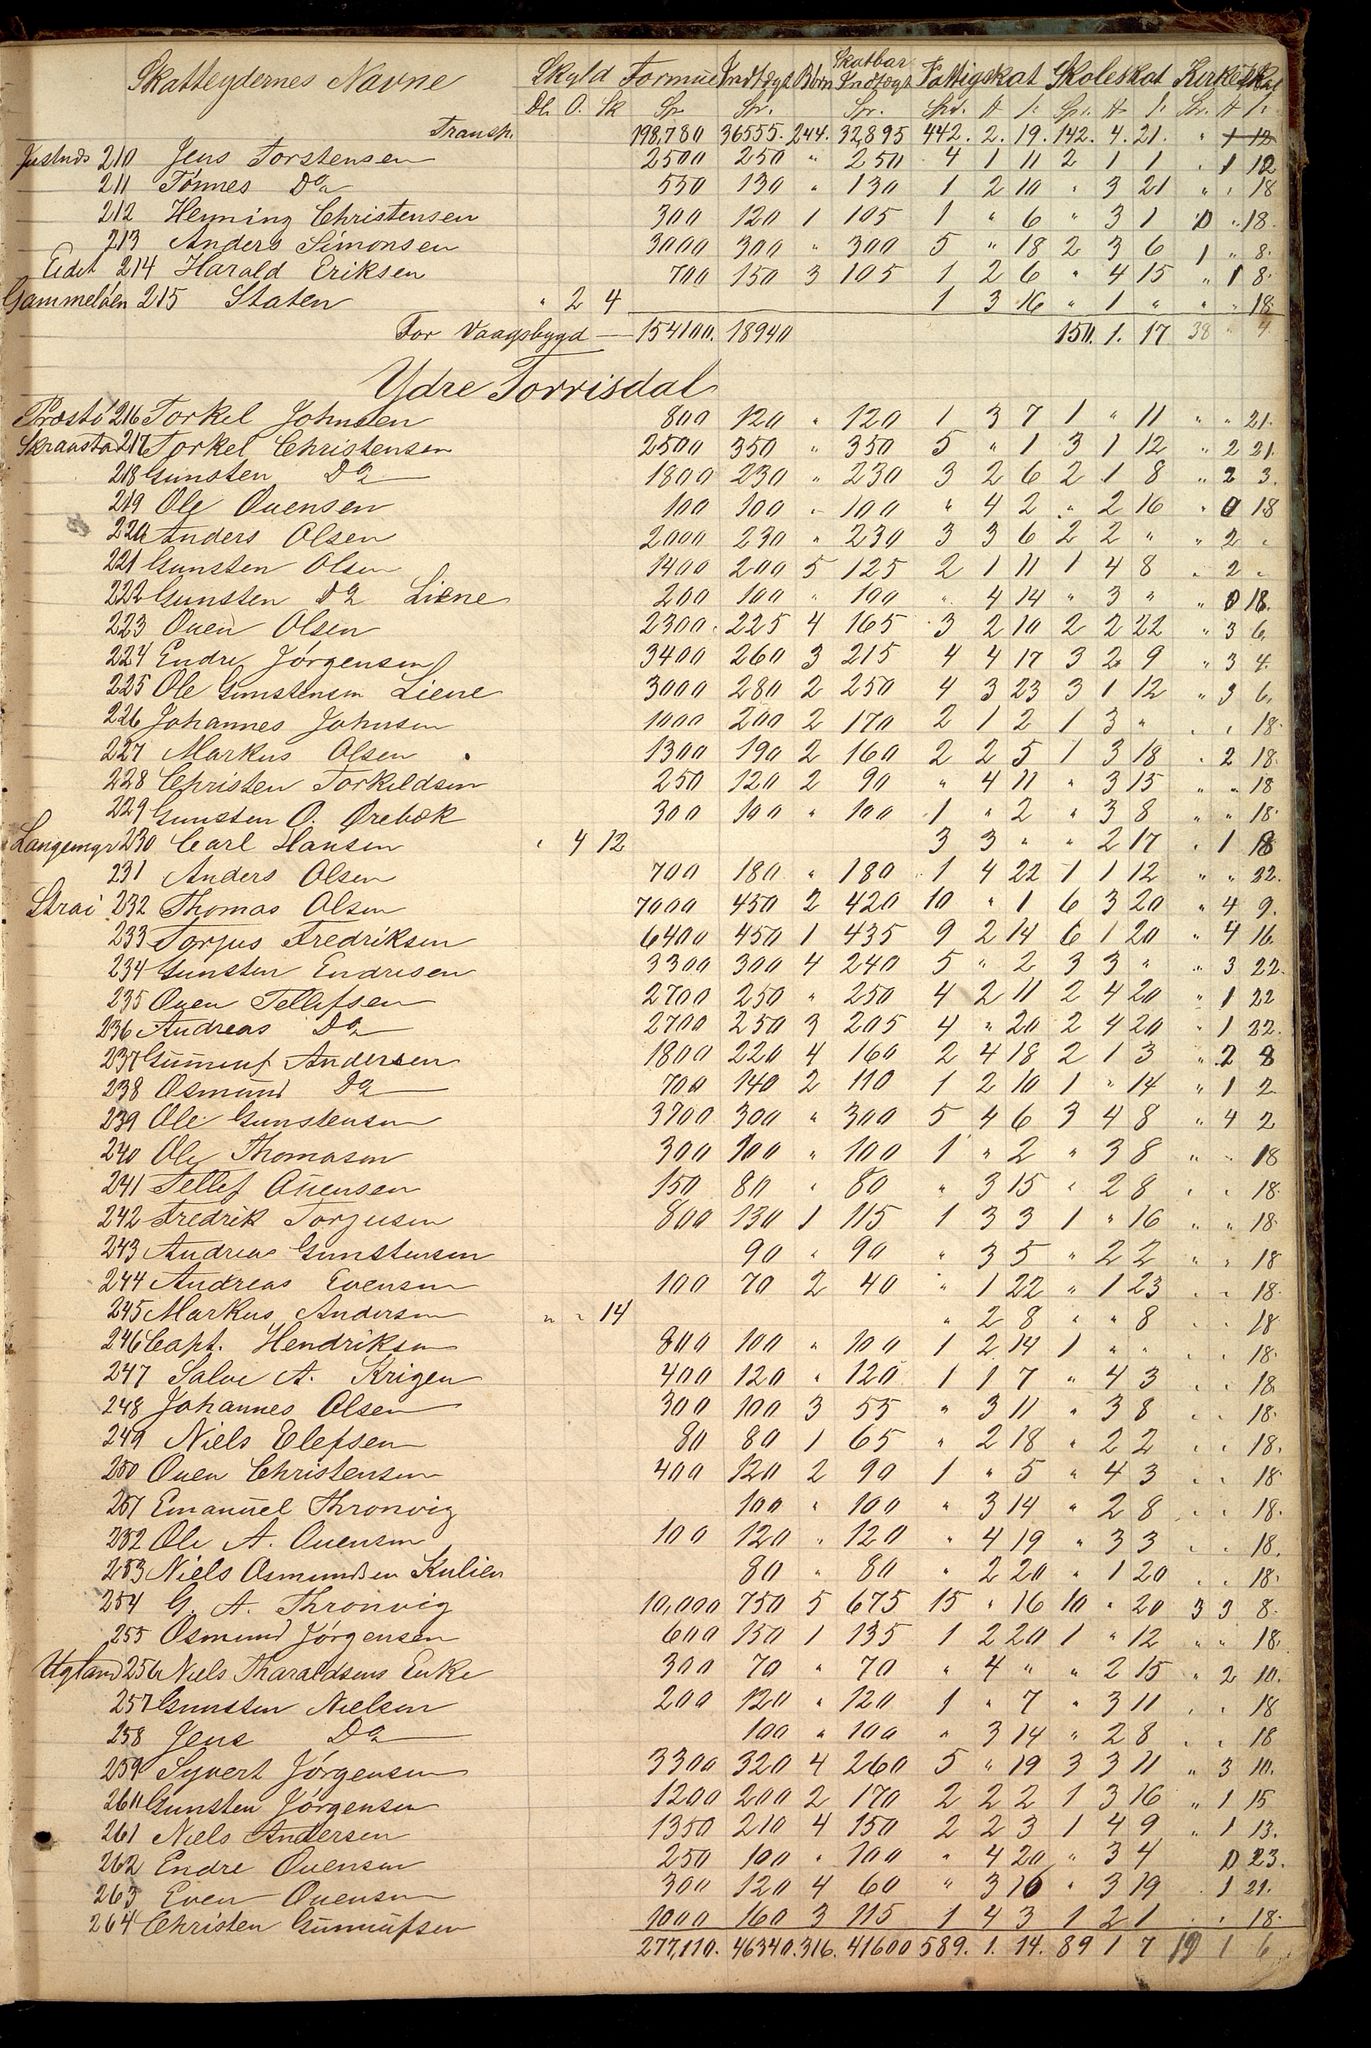 Skatteydernes Navne Skyld Formue Indtægt Børn Skatbar Indtægt Fattigskat Skoleskat Kirkeskat
Dl. O. Sk Sp. Sp. Sp. Spd. # ß: Sp. # ß: Sp. # ß:
Transp. 198,780 36555. 244. 32,895 442. 2. 19. 142. 4. 21. " 1 12
Justnæs 210 Jens Torstensen 2500 250 " 250 4 1 11 2 1 1 " 1 12
211 Tønnes Do 550 130 " 130 1 2 10 " 3 21 " " 18
212 Henning Christensen 300 120 1 105 1 " 6 " 3 1 " 0 18.
213 Anders Simonsen 3000 300 " 300 5 " 18 2 3 6 1 " 8.
Eidet 214 Harald Eriksen 700 150 3 105 1 2 6 " 4 15 " 1 8.
Gammeløen 215 Staten " 2 4 1 3 16 " 1 " " " 18
For Vaagsbygd — 154100. 18940 150. 1. 17 38 " 4
Ydre Torrisdal
Præstø 216 Torkel Johnsen 800 120 " 120 1 3 7 1 " 11 " " 21.
Skraastad 217 Torkel Christensen 2500 350 " 350 5 " 1 3 1 12 " 2 21.
218 Gunsten Do 1800 230 " 230 3 2 6 2 1 8 " 2 3.
219 Ole Ouensen 100 100 " 100 " 4 2 " 2 16 " 0 18
220 Anders Olsen 2000 230 " 230 3 3 6 2 2 " " 2 "
221 Gunsten Olsen 1400 200 5 125 2 1 11 1 4 8 " 2 "
222 Gunsten Do Liene 200 100 " 100 " 4 14 " 3 " " 0 18.
223 Ouen Olsen 2300 225 4 165 3 2 10 2 2 22 " 3 6.
224 Endre Jørgensen 3400 260 3 215 4 4 17 3 2 9 " 3 4.
225 Ole Gunstensen Liene 3000 280 2 250 4 3 23 3 1 12 " 3 6.
226 Johannes Johnsen 1000 200 2 170 2 1 2 1 3 " " " 18.
227 Markus Olsen 1300 190 2 160 2 2 5 1 3 18 " 2 18.
228 Christen Torkildsen 250 120 2 90 " 4 11 " 3 15 " " 18
229 Gunsten O. Ørebæk 300 100 " 100 1 " 2 " 3 8 " " 18.
Langemyr 230 Carl Hansen " 4 12 3 3 " " 2 17 " 1 18
231 Anders Olsen 700 180 " 180 1 4 22 1 1 12 " " 22.
Strai 232 Thomas Olsen 7000 450 2 420 10 " 1 6 3 20 " 4 9.
233 Torjus Fredriksen 6400 450 1 435 9 2 14 6 1 20 " 4 16.
234 Gunsten Endresen 3300 300 4 240 5 " 2 3 3 " " 3 22.
235 Ouen Tellefsen 2700 250 " 250 4 2 11 2 4 20 " 1 22
236 Andreas Do 2700 250 3 205 4 " 20 2 4 20 " 1 22.
237 Gunnuf Andersen 1800 220 4 160 2 4 18 2 1 3 " 2 8
238 Osmund Do 700 140 2 110 1 2 10 1 " 14 " 1 2
239 Ole Gunstensen 3700 300 " 300 5 4 6 3 4 8 " 4 2
240 Ole Thomasen 300 100 " 100 1 " 2 " 3 8 " " 18
241 Tellef Ouensen 150 80 " 80 " 3 15 " 2 8 " " 18.
242 Fredrik Torjusen 800 130 1 115 1 3 3 1 " 16 " " 18.
243 Andreas Gunstensen 90 " 90 " 3 5 " 2 2 " " 18
244 Andreas Evensen 100 70 2 40 " 1 22 " 1 23 " " 18.
245 Markus Andersen " " 14 " 2 8 " " 8 " " 18
246 Capt. Hendriksen 800 100 " 100 1 2 14 1 " " " " 18.
247 Salve A. Krigen 400 120 " 120 1 1 7 " 4 3 " " 18.
248 Johannes Olsen 300 100 3 55 " 3 11 " 3 8 " " 18.
249 Niels Elefsen 80 80 1 65 " 2 18 " 2 2 " " 18.
250 Ouen Christensen 400 120 2 90 1 " 5 " 4 3 " " 18
251 Emanuel Thronvig 100 " 100 " 3 14 " 2 8 " " 18.
252 Ole A. Ouensen 100 120 " 120 " 4 19 " 3 3 " " 18.
253 Niels Osmundsen Kulien 80 " 80 " 2 20 " 1 20 " " 18.
254 G. A. Thronvig 10,000 750 5 675 15 " 16 10 " 20 3 3 8.
255 Osmund Jørgensen 600 150 1 135 1 2 20 1 " 12 " " 18.
Ugland 256 Niels Tharaldsens Enke 300 70 " 70 " 4 " " 2 15 " 2 10.
257 Gunsten Nielsen 200 120 " 120 1 " 7 " 3 11 " " 18
258 Jens Do 100 " 100 " 3 14 " 2 8 " " 18
259 Syvert Jørgensen 3300 320 4 260 5 " 19 3 3 11 " 3 10.
260 Gunsten Jørgensen 1200 200 2 170 2 2 2 1 3 16 " 1 15
261 Niels Andersen 1350 210 4 150 2 2 3 1 4 9 " 1 13.
262 Endre Ouensen 250 100 " 100 " 4 20 " 3 4 0 23.
263 Even Ouensen 300 120 4 60 " 3 16 " 3 19 " 1 21.
264 Christen Gunnufsen 1000 160 3 115 1 4 3 1 2 1 " " 18.
277,110. 46340. 316. 41600 589. 1. 14. 89 1 7 19 1 6